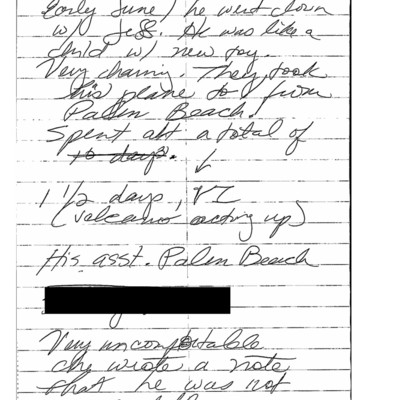 Early June) he went down
w/ Jeff. He was like a
child w/ new toy.
Very charming. They took
his plane to & from
Palm Beach.
Spent abt a total of
10 days.
1 1/2 days, VI
(volcano acting up)
His asst. Palm Beach
Very uncomfortable
she wrote a note
that he was not